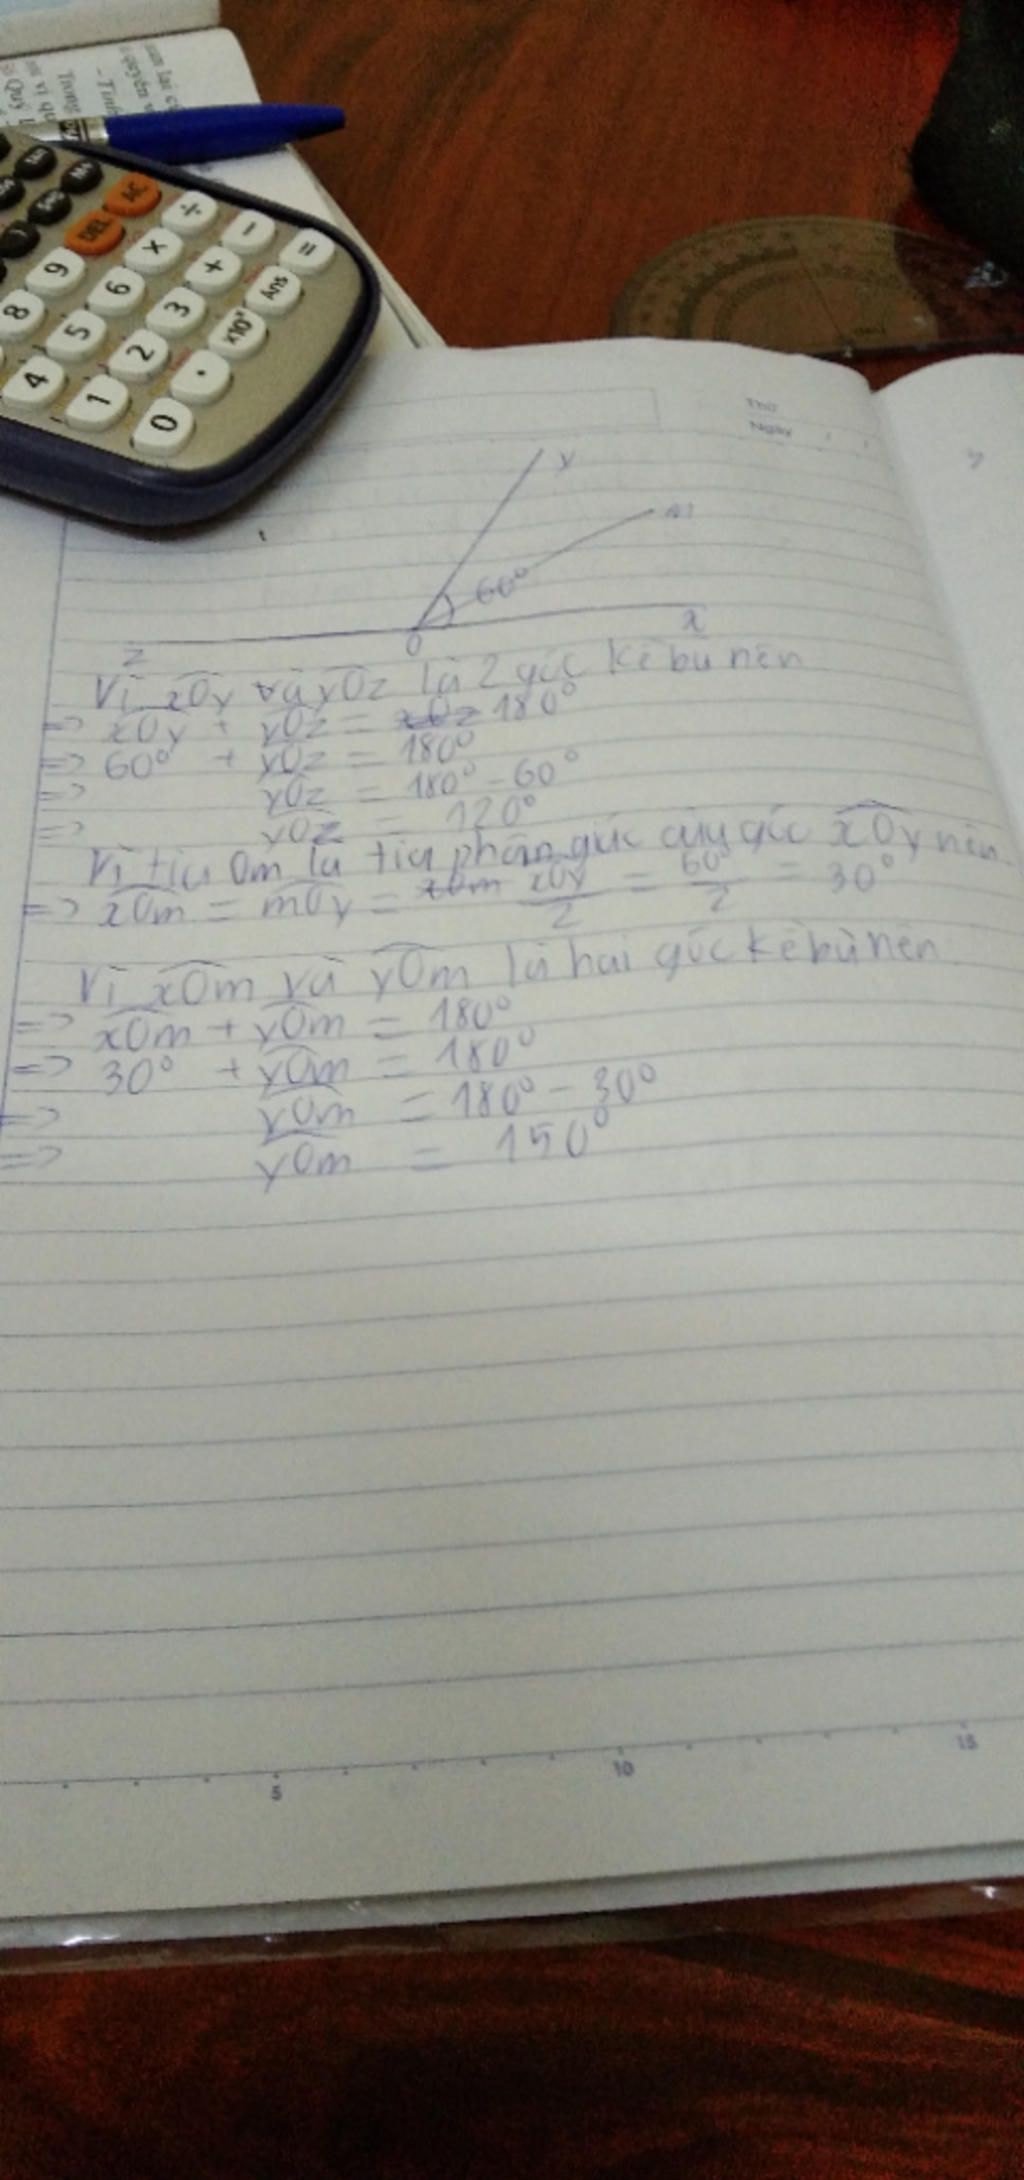 DEL
AC
÷
9
×
−
8
6
+
=
5
3
Ans
4
2
×10ˣ
1
.
0
Thứ
Ngày
y
m
60°
x
O
z
Vì xOy và yOz là 2 góc kề bù nên
=> xOy + yOz = xOz 180°
=> 60° + yOz = 180°
=> yOz = 180° - 60°
=> yOz = 120°
Vì tia Om là tia phân giác của góc xOy nên
=> xOm = mOy = xOm xOy/2 = 60°/2 = 30°
Vì xOm và yOm là hai góc kề bù nên
=> xOm + yOm = 180°
=> 30° + yOm = 180°
=> yOm = 180° - 30°
=> yOm = 150°
5
10
15